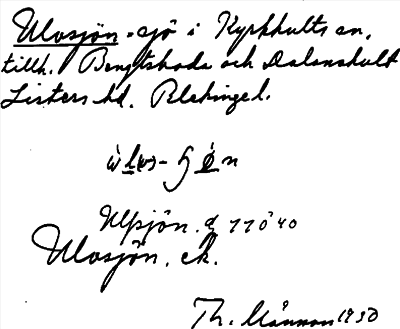 Ulvsjön - sjö i Kyrkhults sn,
tillh. Bengtsboda och Dalanshult
Listers hd. Blekinge l.
Ulfsjön. d 110 40
Ulvsjön. ek.
Th. 1930